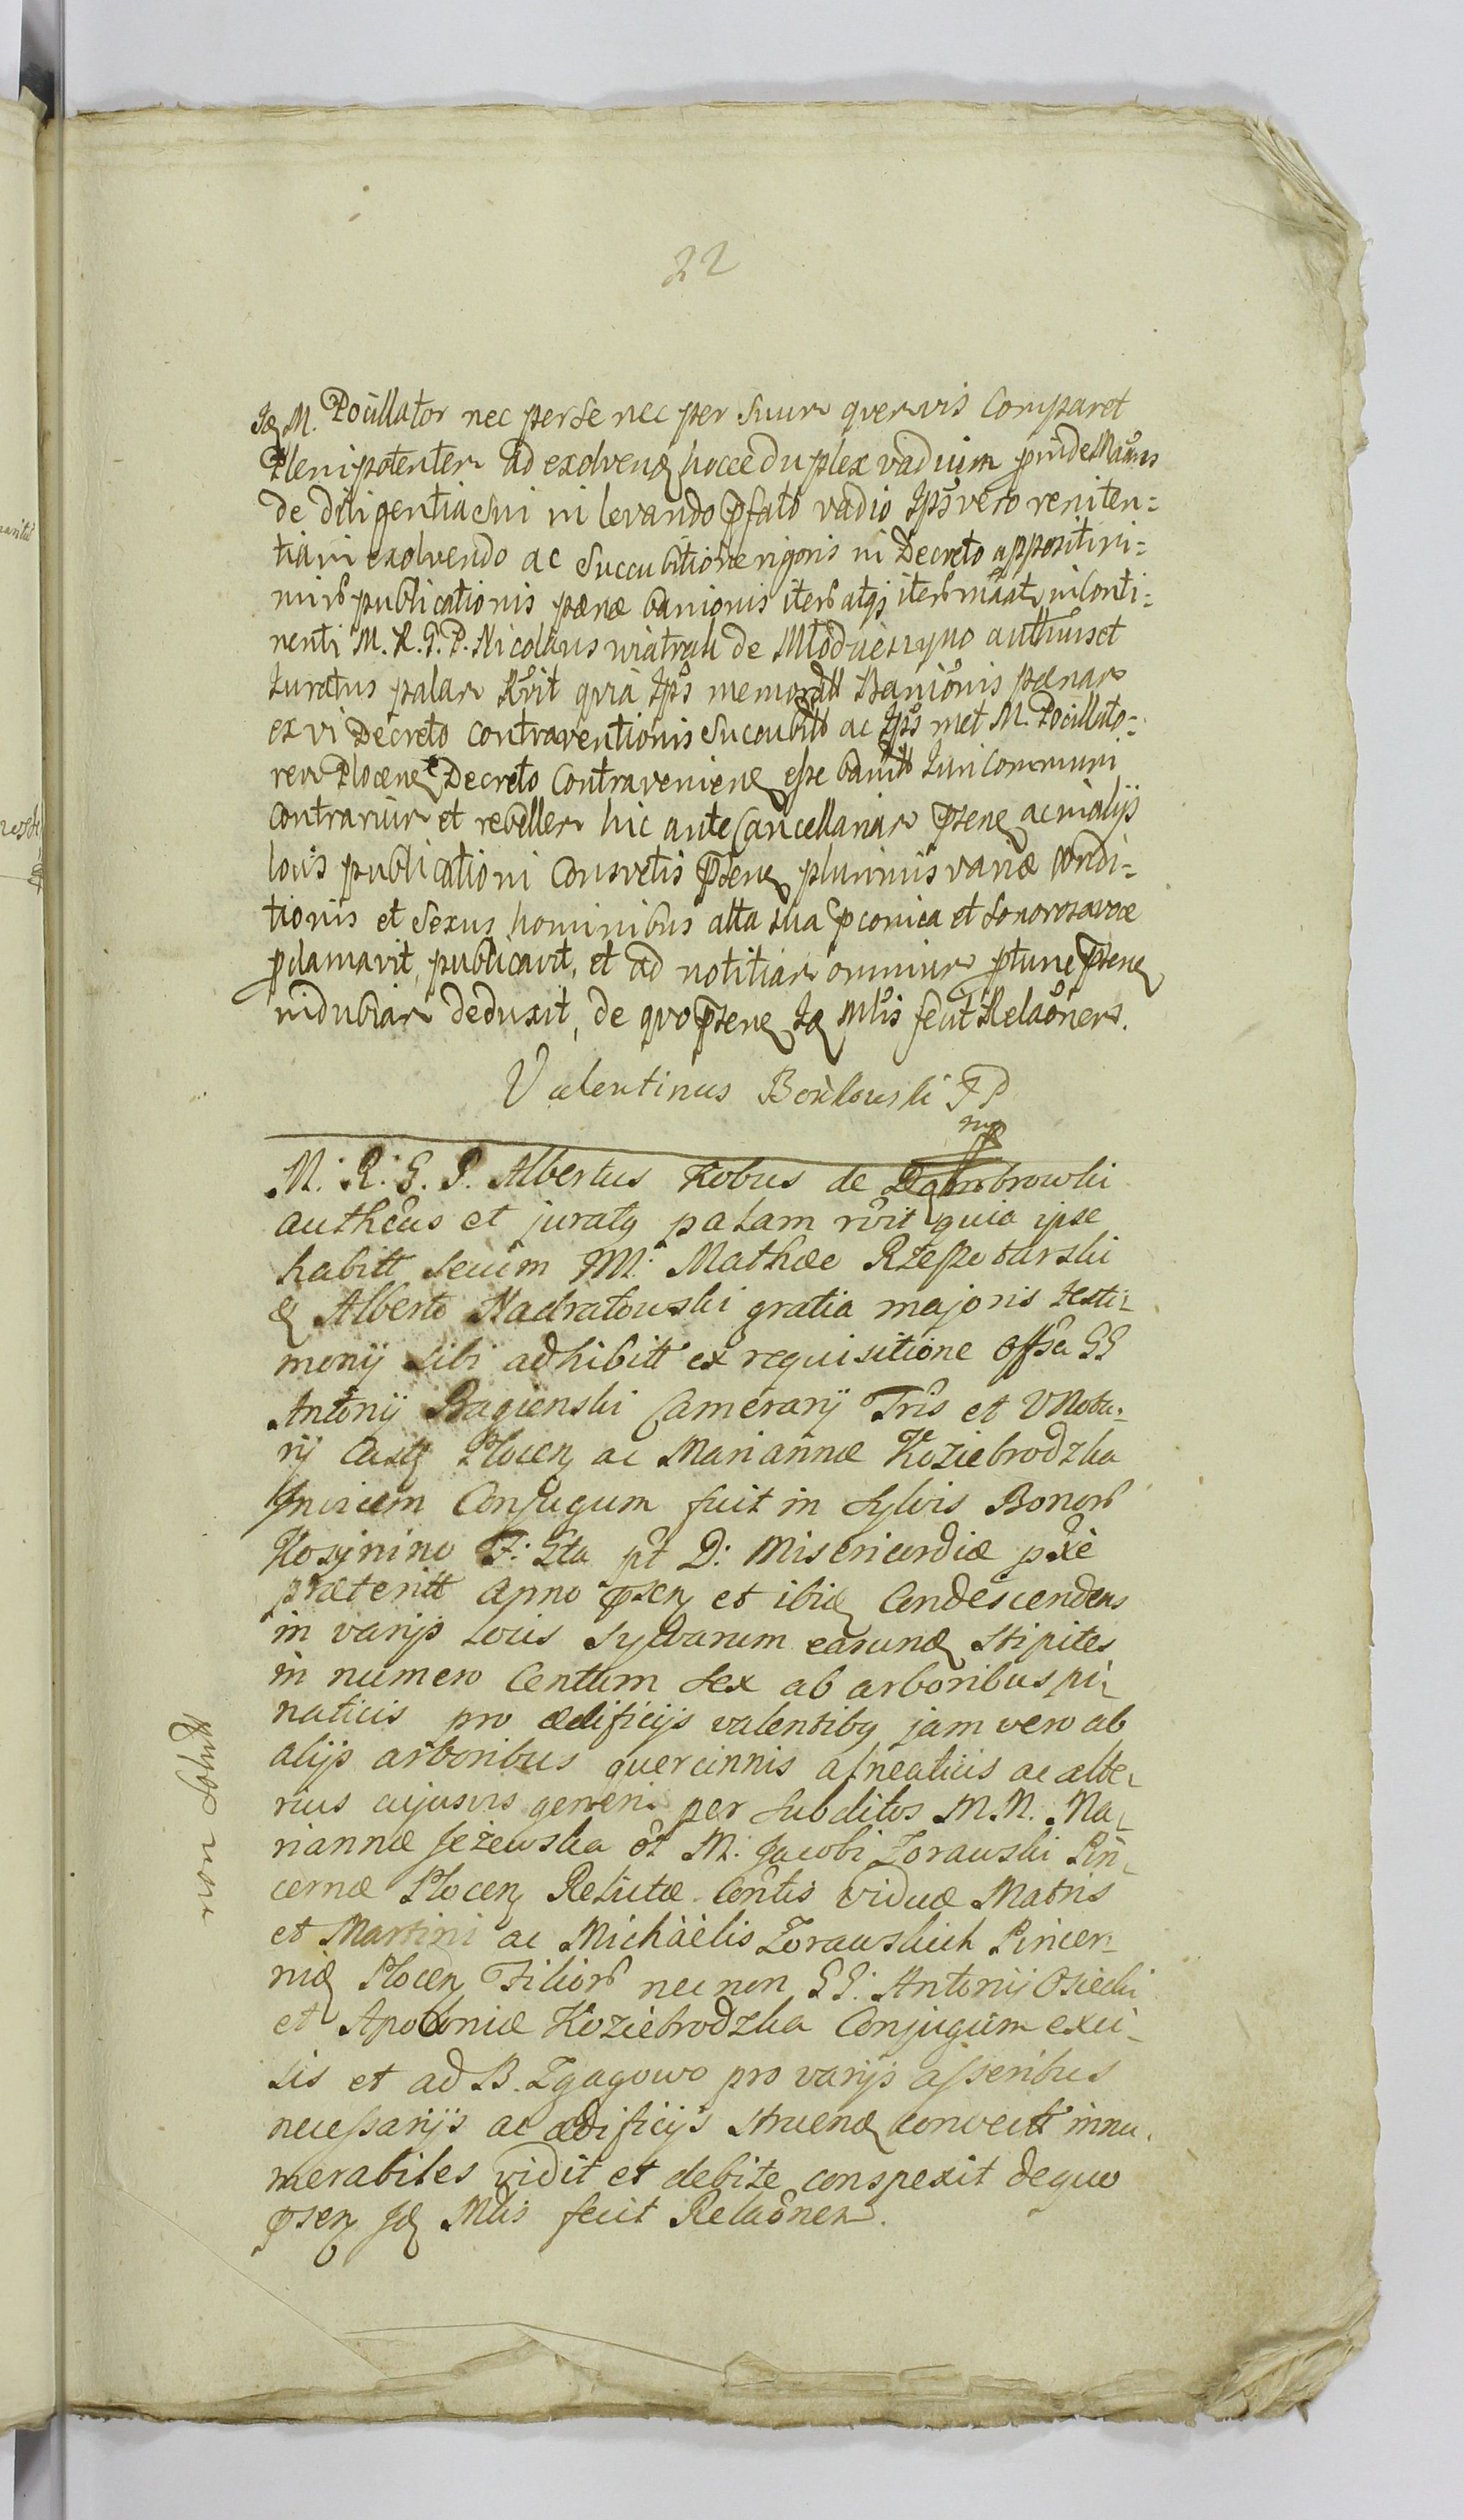 22
Id M. Pocillator nec per se nec per Suum quemvis Comparet
Plenipotentem ad exolvend hocce duplex vadium
de diligentia sui in levando pfato vadio Ips vero reniten=
tia in exolvendo ac Succubitione rigoris in Decreto appositi ni=
mirb publicationis pænæ banionis iterb atqj iterb in Conti=
nenti M. R. G. P. Nicolaus wiatrak de Młodzieszyno authus et
Juratus palam Rvit quia Ips memoratt Banionis pænam
ex vi Decreto contraventionis Succubitt ac Ips met M. Pocillato=
rem Plocene Decreto Contraveniene esse banitt Juri Communi
Contrarium et rebellem hic ante Cancellariam psene ac in alijs
locis publicationi Consvetis psene plurimis variæ condi=
tionis et Sexus hominibus alta sua pconica et sonorosa voce
pclamavit, publicavit, et ad notitiam omnium ptunc psene
indubiam deduxit, de quo psene Id Mlis fecit Relaonem.
Valentinus Bożkowski
mp
M. R. G. P. Albertus Kobus de Dąmbrowki
autheus et juratg palam rvit quia ipse
habitt secum M. Mathæo Rzeszotarski
& Alberto Nadratowski gratia majoris testi-
monij sibi adhibitt ex requisitione Offsa GG
Antonij Bagienski Camerarij Tris et VNota-
rij Castr Plocen ac Mariannæ Koziebrodzka
Invicem Conjugum fuit in Sylvis Bonorb
Kosynino F: Sta pt D: Misericordiæ pxe
præteritt Anno psen et ibid Condescendens
in varijs Locis Sylvarum earund Stipites
in numero Centum Sex ab arboribus pi-
naticis pro ædificijs valentibg jam vero ab
alijs arboribus quercinnis alneaticis ac alte-
rius cujusvis generi per Subditos M.M. Ma-
riannæ Jeżewska ot M. Jacobi Zorawski Pin-
cernæ Plocen Relictæ Contis Viduæ Matris
et Martini ac Michaëlis Zorawskich Pincer-
nid Plocen Filiorb nec non GG. Antonij Osiecki
et Apoloniæ Koziebrodzka Conjugum exci-
sis et ad B. Zgagowo pro varijs asseribus
necessarijs ac ædificijs struend convectt innu-
merabiles vidit et debite conspexit de quo
psen Id Mlis fecit Relaonem.